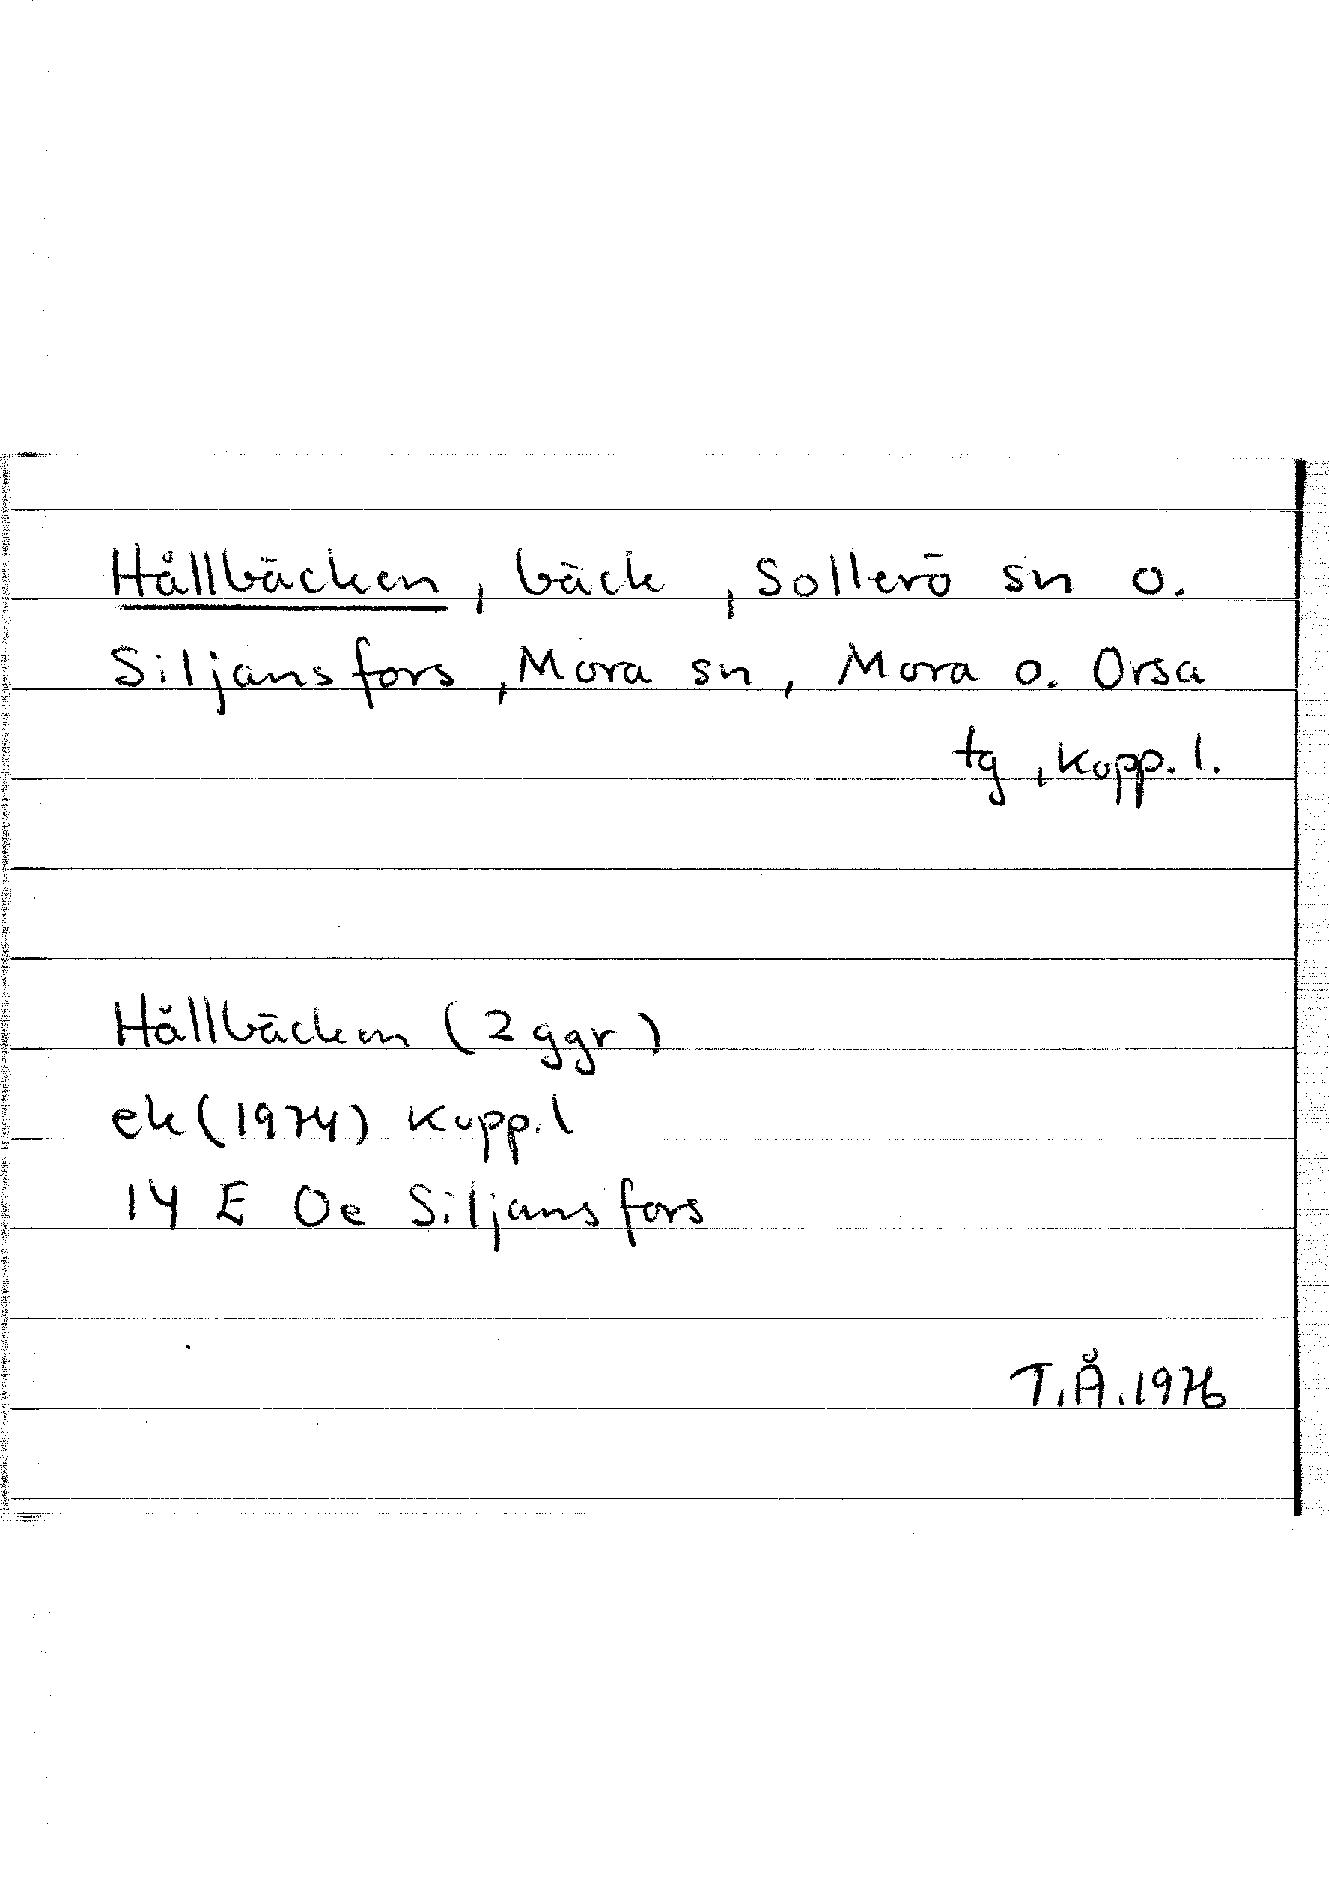 Hållbäcken, bäck, Sollerö sn o.
Siljansfors, Mora sn, Mora o. Orsa
tg, Kopp. l.
Hållbäcken (2 ggr)
ek (1974) Kopp. l
14 E Oe Siljansfors
T.Å. 1976